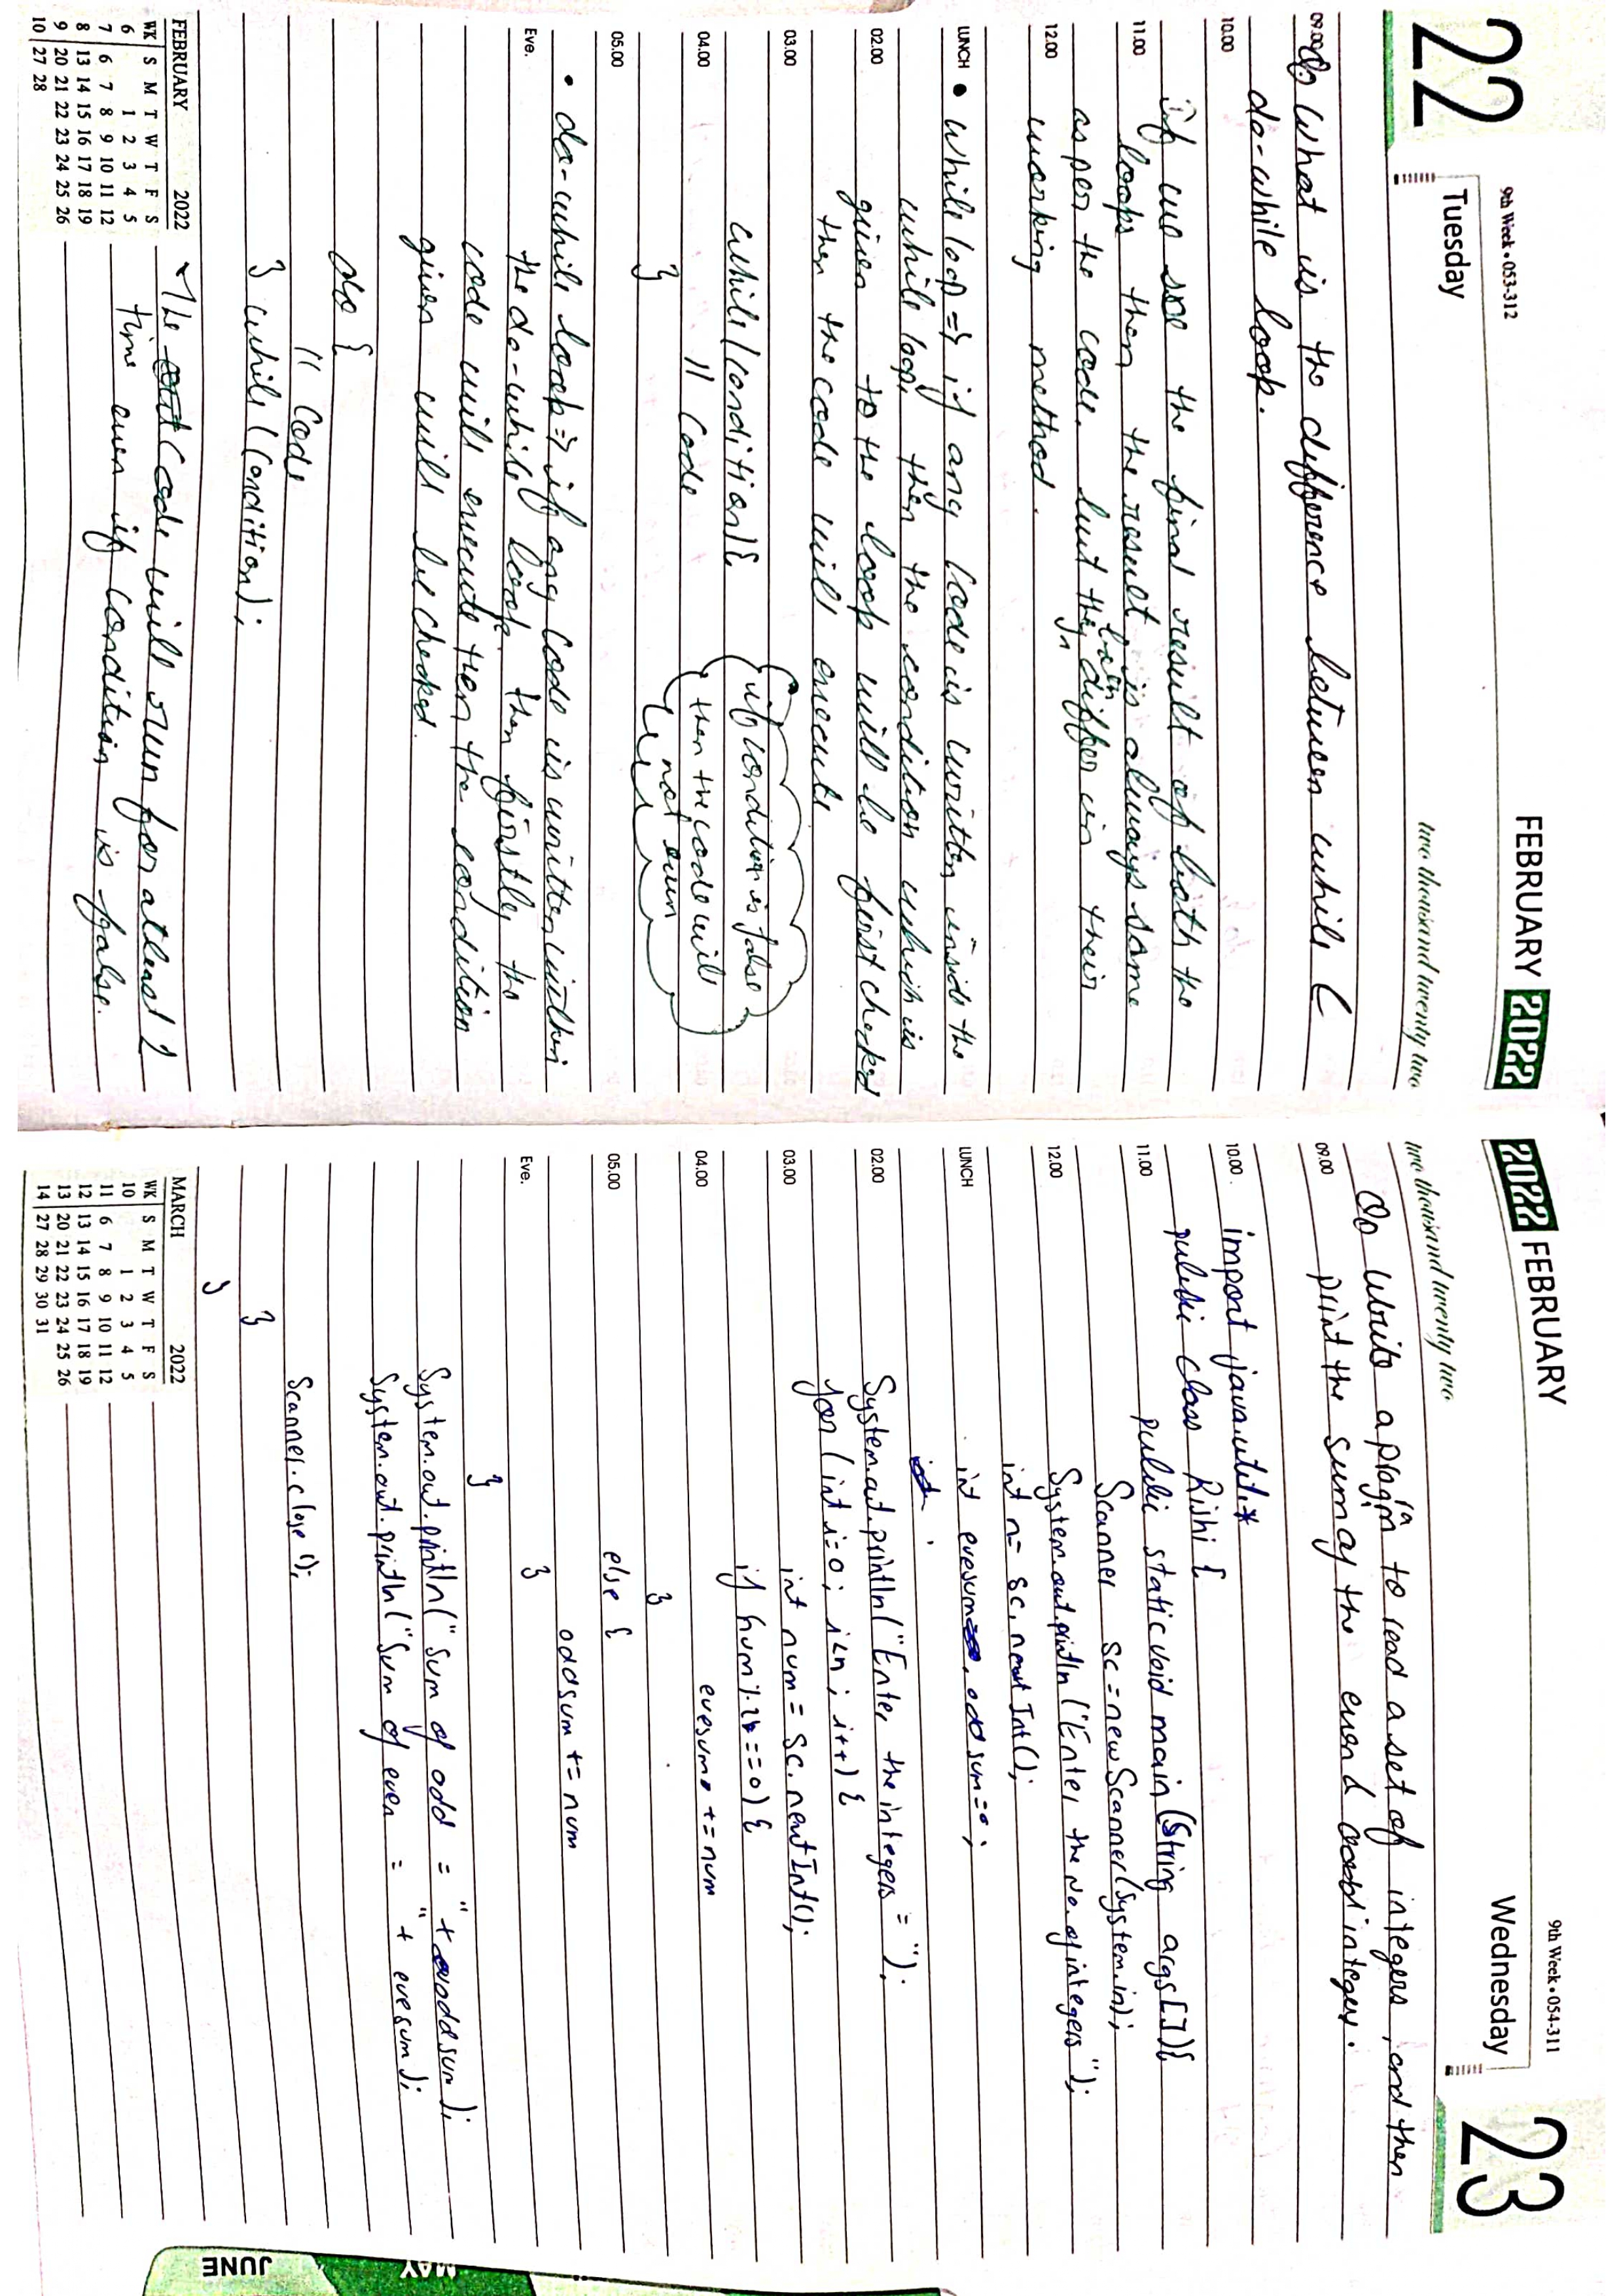 22
9th Week • 053-312
FEBRUARY 2022
Tuesday
two thousand twenty two
09.00
Q. What is the difference between while &
do-while loop.
10.00
If we see the final result of both the
11.00
loops then the result is always same
as per the code. but they both differ in their
12.00
working method.
LUNCH
• while loop => if any code is written inside the
while loop, then the condition which is
02.00
given to the loop will be first checked
then the code will execute
03.00
while (condition) {
04.00
// Code
}
if condition is false
then the code will
not run
05.00
• do-while loop => if any code is written within
Eve.
the do-while loop then firstly the
code will execute then the condition
given will be checked.
do {
// Code
} while (condition);
The code will run for atleast 1
time even if condition is false.
FEBRUARY 2022
WK S M T W T F S
6 1 2 3 4 5
7 6 7 8 9 10 11 12
8 13 14 15 16 17 18 19
9 20 21 22 23 24 25 26
10 27 28
2022 FEBRUARY
9th Week • 054-311
Wednesday
23
two thousand twenty two
Q. Write a program to read a set of integers, and then
09.00
print the sum of the even & odd integers.
10.00
import java.util.*
public class Rishi {
11.00
public static void main (String args[]){
Scanner sc = new Scanner(System.in);
12.00
System.out.println ("Enter the No. of integers");
int n= sc.next Int();
LUNCH
int evesum, oddsum=0;
int
02.00
System.out.println("Enter the integers = ");
for (int i=0; i<n; i++) {
03.00
int num = sc.nextInt();
if (num%2==0) {
04.00
evesum += num
}
05.00
else {
oddsum += num
Eve.
}
}
System.out.println("Sum of odd = "+ oddsum);
System.out.println("Sum of even = "+ evesum);
Scanner.close();
}
}
MARCH 2022
WK S M T W T F S
10 1 2 3 4 5
11 6 7 8 9 10 11 12
12 13 14 15 16 17 18 19
13 20 21 22 23 24 25 26
14 27 28 29 30 31
MAY
JUNE